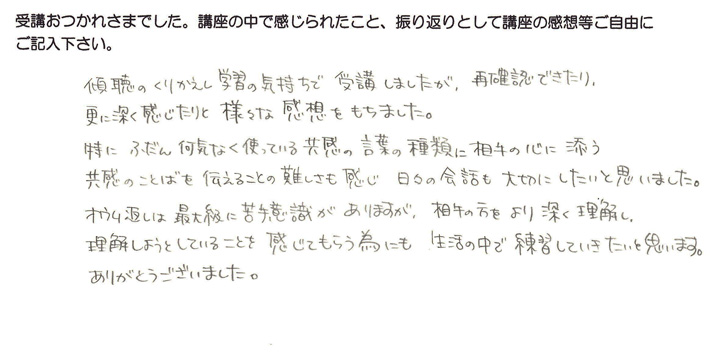 受講おつかれさまでした。講座の中で感じられたこと、振り返りとして講座の感想等ご自由に
ご記入下さい。
傾聴のくりかえし学習の気持ちで 受講しましたが、再確認できたり、
更に深く感じたりと様々な感想をもちました。
特に ふだん何気なく使っている共感の言葉の種類に相手の心に添う
共感のことばを伝えることの難しさも感じ 日々の会話も大切にしたいと思いました。
オウム返しは最大級に苦手意識がありますが、相手の方をより深く理解し、
理解しようとしていることを感じてもらう為にも 生活の中で練習していきたいと思います。
ありがとうございました。